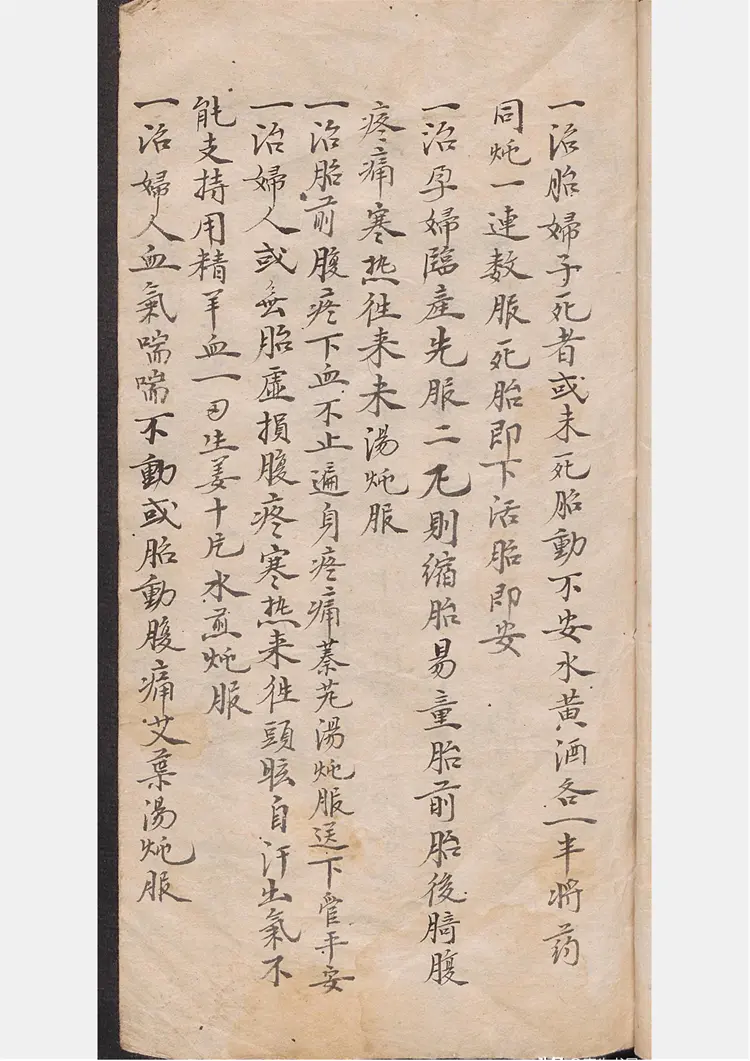 一治胎婦子死者或未死胎動不安水黄酒各一半将药
同炖一連数服死胎即下活胎即安
一治孕婦臨產先服二
則缩胎易
胎前胎後
腹
疼痛寒热徃来
湯炖服
一治胎前腹疼下血不止遍身疼痛蓁艽湯炖服送下管平安
一治婦人或無胎虚損腹疼寒热来徃頭眩自汗出氣不
能支持用精羊血一
生姜十片水煎炖服
一治婦人血氣喘喘不動或胎動腹痛艾葉湯炖服